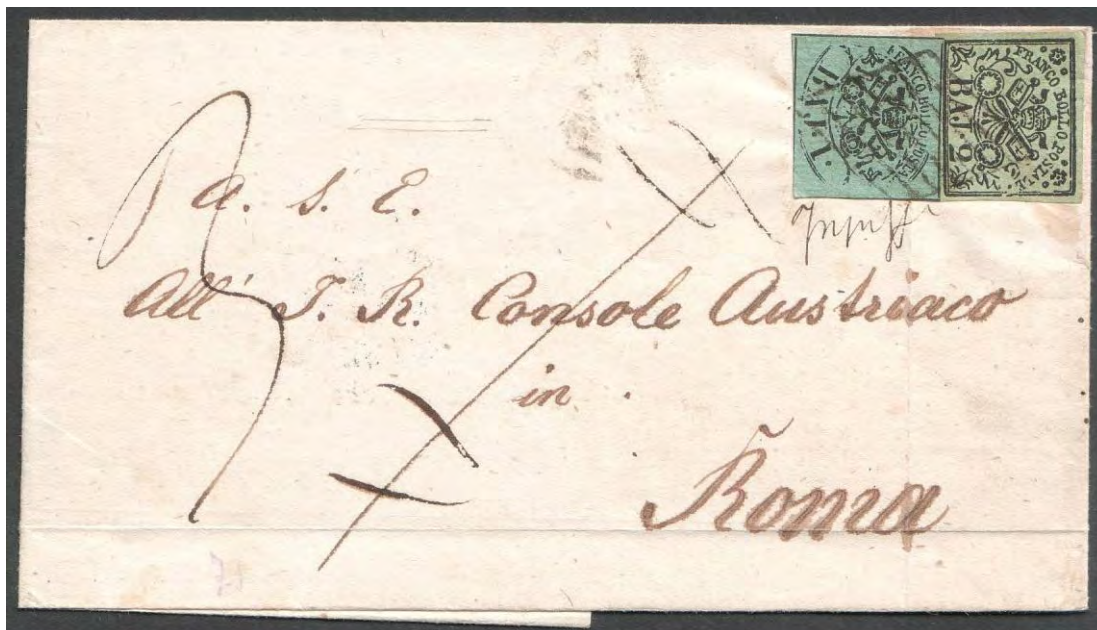 FRANCO BOLLO POSTALE
BAJ. 1
FRANCO BOLLO POSTALE
BAJ. 2
a. S. E.
All' I. R. Console Austriaco
in
Roma